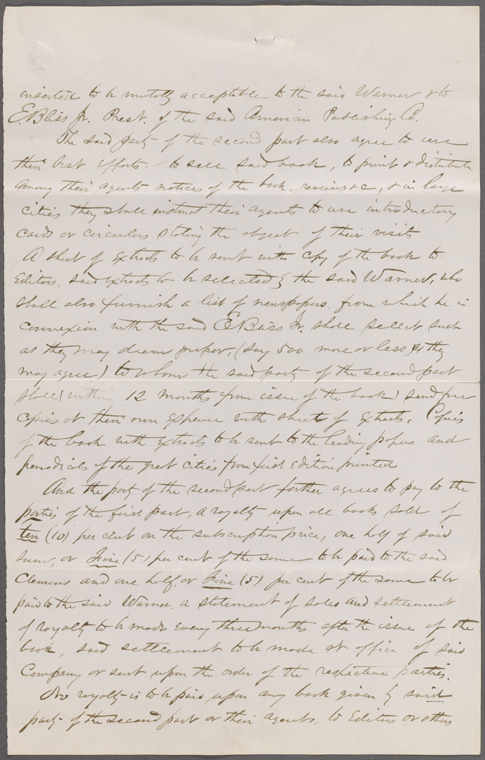 inserted to be mutally acceptable to the said Warner & to
E. Bliss Jr. Prest. of the said American Publishing Co.
The said party of the second part also agree to use
their best efforts to sell said book, to print & distribute
among their agents notices of the book, reviews &c, & in large
cities they shall instruct their agents to use introductory
cards or circulars stating the object of their visit
A sheet of extracts to be sent with copy of the book to
Editors, said extracts to be selected by the said Warner, who
shall also furnish a list of newspapers, from which he in
connexion with the said E Bliss Jr. shall select such
as they may deem proper, (say 500 more or less as they
may agree) to whom the said party of the second part
shall (within 12 months from issue of the book) send free
copies at their own expense with sheets of extracts. Copies
of the book with extracts to be sent to the leading papers and
periodicals of the great cities from first edition printed
And the party of the second part further agrees to pay to the
parties of the first part, a royalty upon all books sold of
ten (10) per cent on the subscription price, one half of said
sum, or Five (5) per cent of the same to be paid to the said
Clemens and one half or Five (5) per cent of the same to be
paid to the said Warner. a statement of sales and settlement
of royalty to be made every three months after the issue of the
book, said settlement to be made at office of said
Company or sent upon the order of the respective parties.
No royalty is to be paid upon any book given by said
party of the second part or their agents, to Editors or others